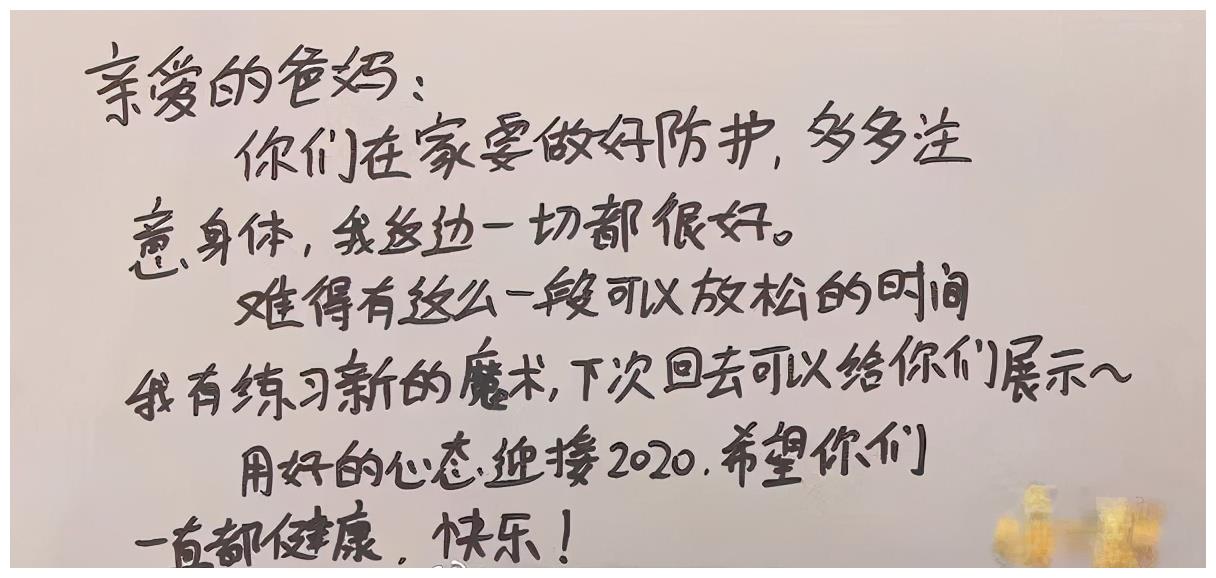 亲爱的爸妈:
你们在家要做好防护,多多注
意身体,我这边一切都很好。
难得有这么一段可以放松的时间
我有练习新的魔术,下次回去可以给你们展示~
用好的心态迎接2020.希望你们
一直都健康,快乐!